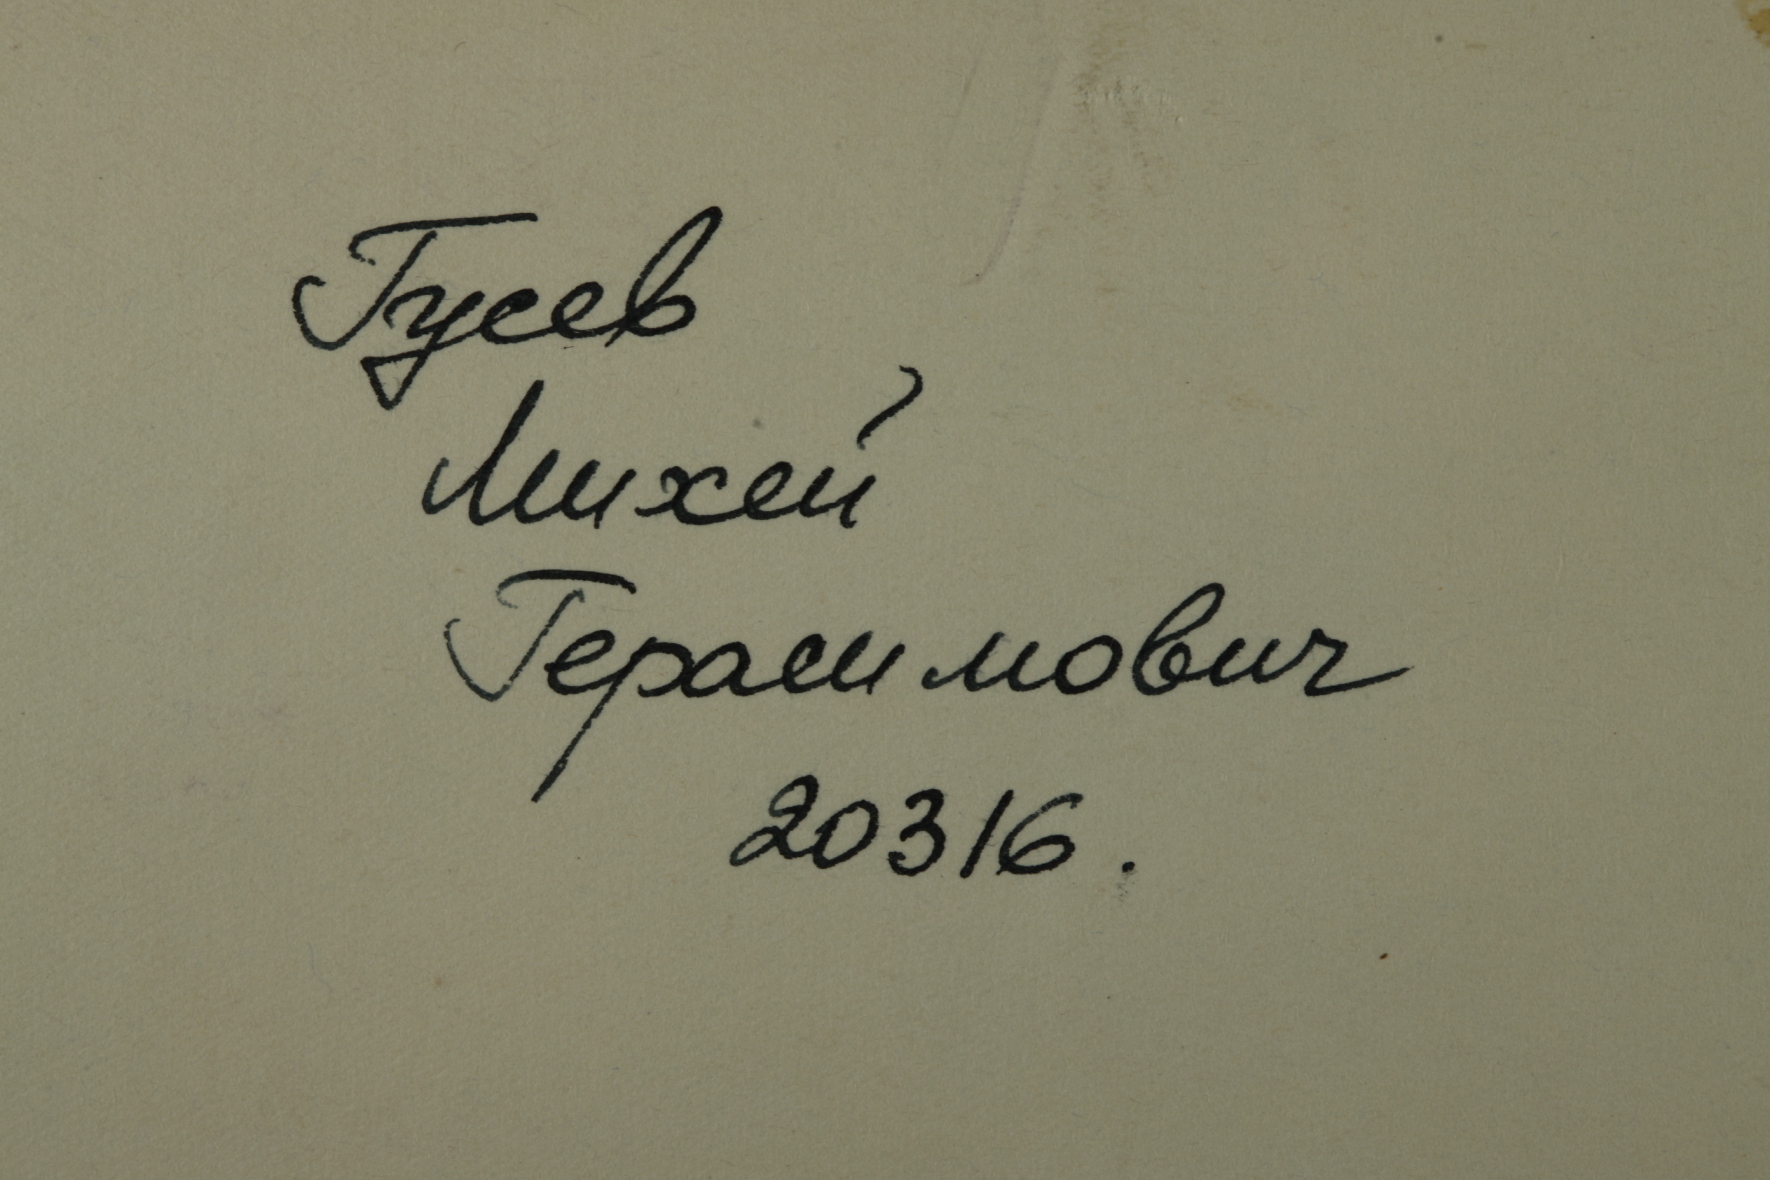 Гусев
Михей
Герасимович
20316.